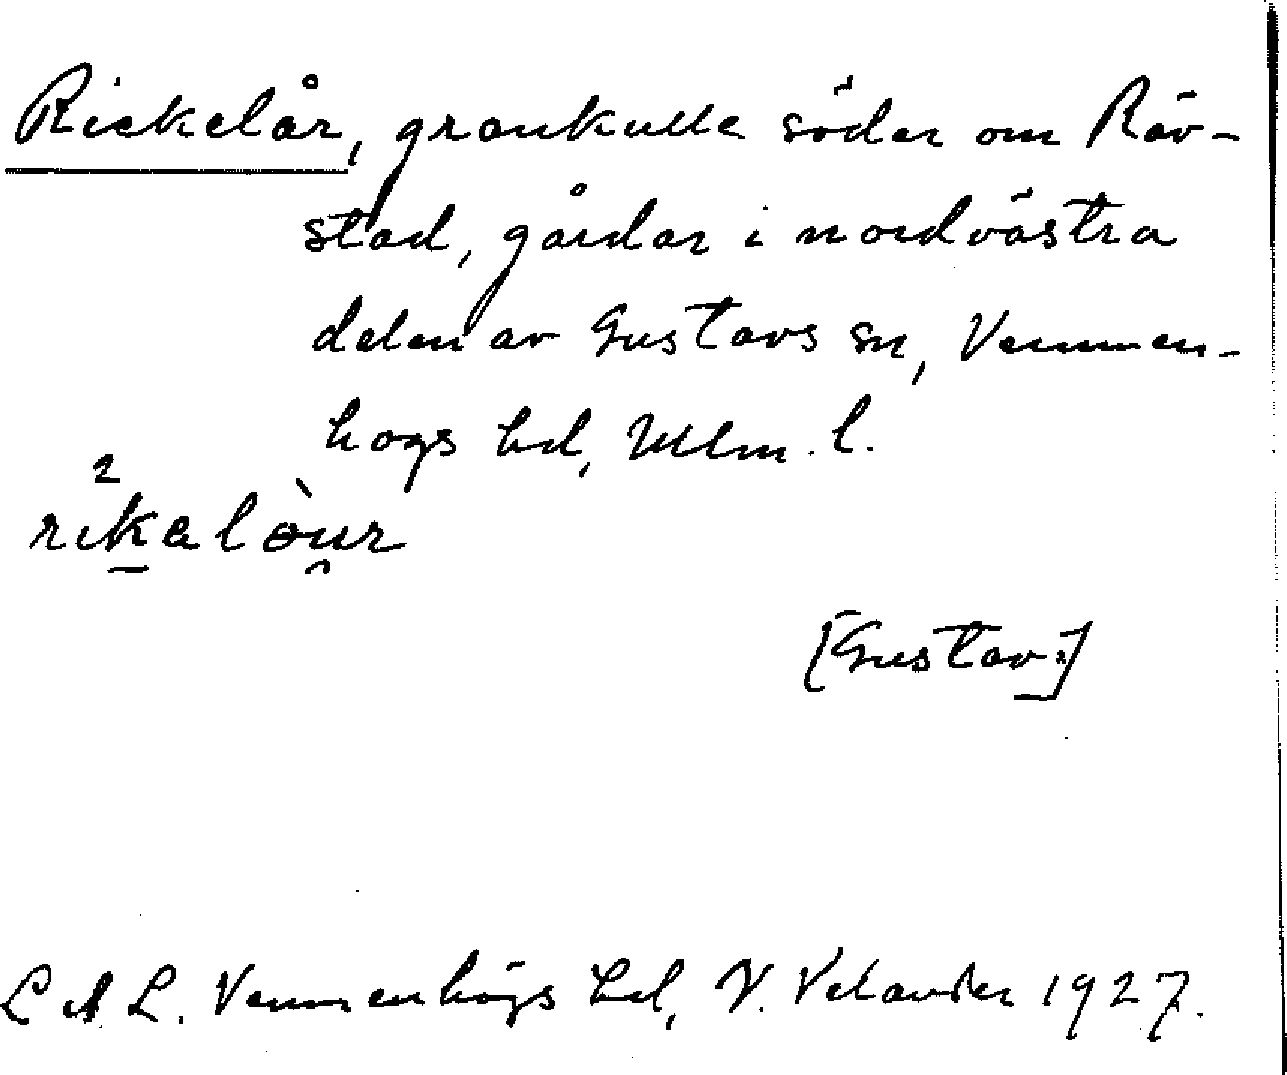 Rickelår, grankulle söder om Räv-
stad, gårdar i nordvästra
delen av Gustavs sn, Vemmen-
hogs hd, Mlm. l.
rikalòur
[Gustav:]
L A L. Vemmenhögs hd, N. Velander 1927.